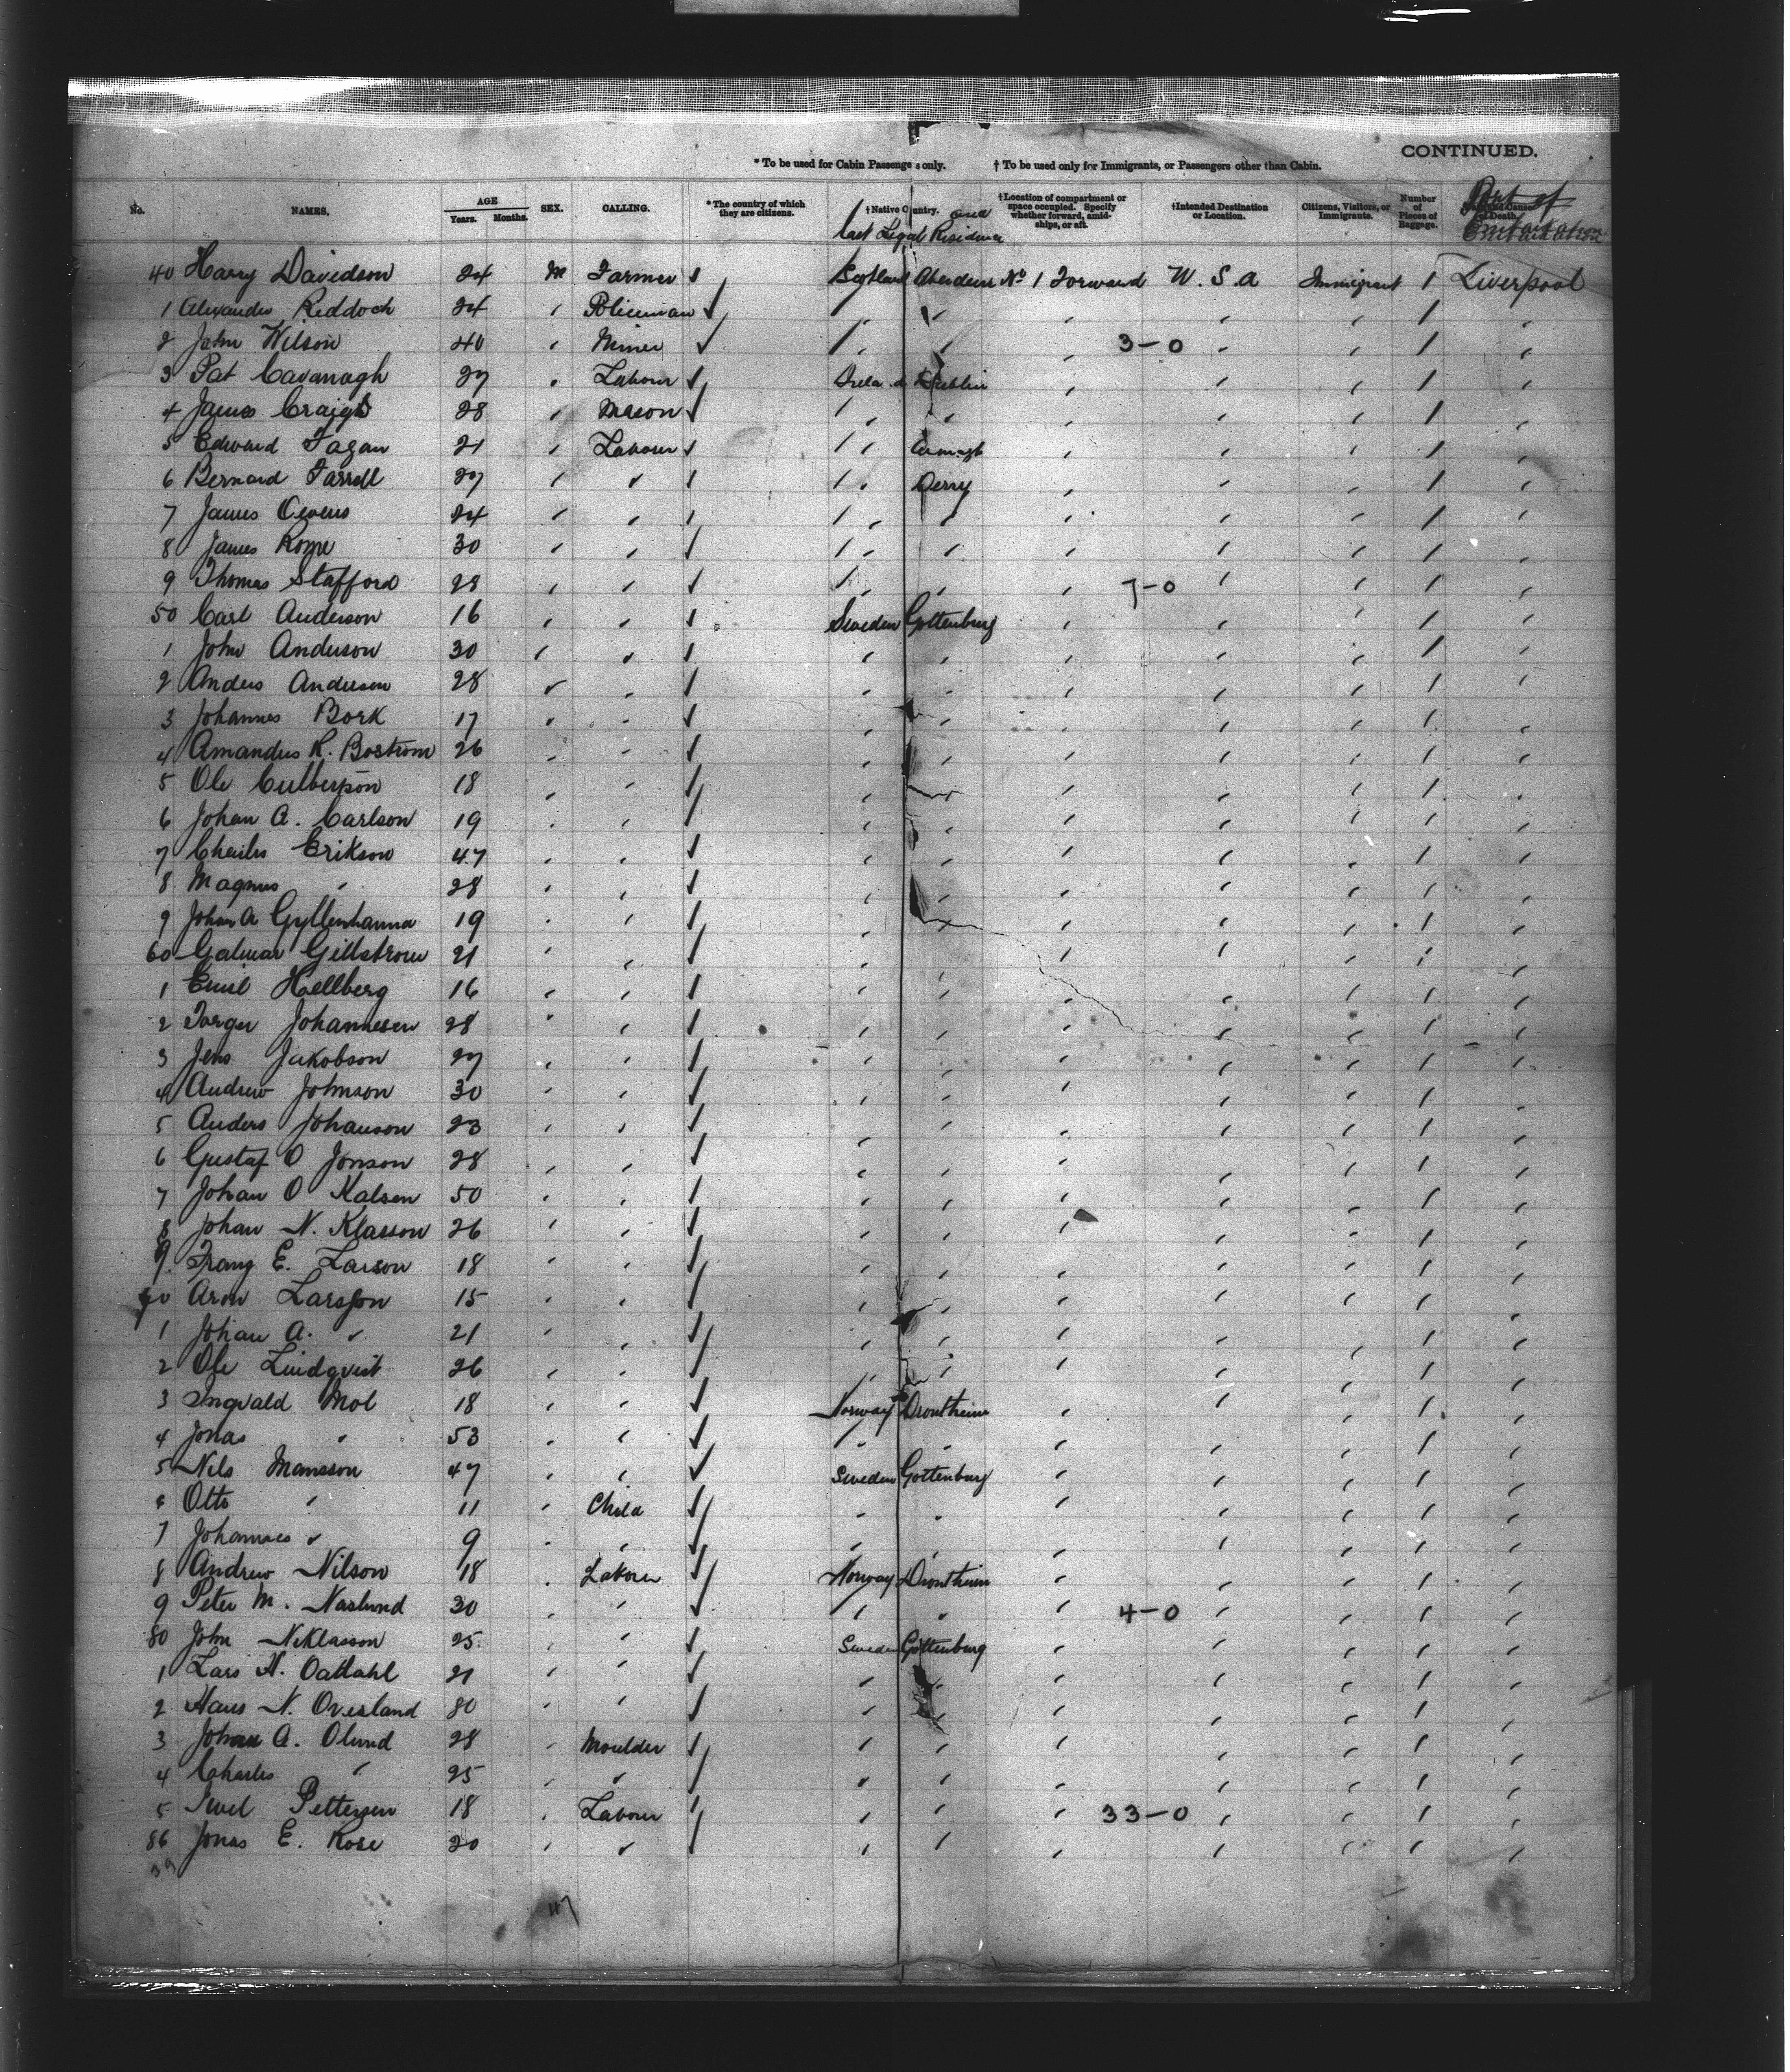 CONTINUED.
* To be used for Cabin Passenge s only. † To be used only for Immigrants, or Passengers other than Cabin.
No. NAMES. AGE Years. Months. SEX. CALLING. * The country of which they are citizens. † Native Country. and last Legal Residence † Location of compartment or space occupied. Specify whether forward, amidships, or aft. † Intended Destination or Location. Citizens, Visitors, or Immigrants. Number of Pieces of Baggage. Port of Embarkation
40 Harry Davidson 24 M Farmer Scotland Aberdeen No 1 Forward U.S.A Immigrant 1 Liverpool
1 Alexander Reddoch 24 " Policeman " " " " " 1 "
2 John Wilson 40 " Miner " " " 3-0 " " 1 "
3 Pat Cavanagh 27 " Labour Irela d Dublin " " " 1 "
4 James Craig 28 " Mason " " " " " 1 "
5 Edward Fagan 21 " Labour " Armagh " " " 1 "
6 Bernard Farrell 27 " " " Derry " " " 1 "
7 James Owens 24 " " " " " " " 1 "
8 James Rome 30 " " " " " " " 1 "
9 Thomas Stafford 28 " " " " " 7-0 " " 1 "
50 Carl Anderson 16 " " Sweden Gottenburg " " " 1 "
1 John Anderson 30 " " " " " " " 1 "
2 Anders Andersen 28 " " " " " " " 1 "
3 Johannes Bork 17 " " " " " " " 1 "
4 Amandus K. Bostrom 26 " " " " " " " 1 "
5 Ole Culberson 18 " " " " " " " 1 "
6 Johan A. Carlson 19 " " " " " " " 1 "
7 Charles Erikson 47 " " " " " " " 1 "
8 Magnus " 28 " " " " " " " 1 "
9 Johan A Gyllenhamna 19 " " " " " " " 1 "
60 Galmar Gillstrom 21 " " " " " " " 1 "
1 Emil Hellberg 16 " " " " " " " 1 "
2 Torger Johannesen 28 " " " " " " " 1 "
3 Jens Jakobson 27 " " " " " " " 1 "
4 Andrew Johnson 30 " " " " " " " 1 "
5 Anders Johanson 23 " " " " " " " 1 "
6 Gustaf O Jonson 28 " " " " " " " 1 "
7 Johan O Kalsen 50 " " " " " " " 1 "
8 Johan N. Klasson 26 " " " " " " " 1 "
9. Franz E. Larson 18 " " " " " " " 1 "
70 Aron Larsson 15 " " " " " " " 1 "
1 Johan A. " 21 " " " " " " " 1 "
2 Ole Lindqvist 26 " " " " " " " 1 "
3 Ingvald Mol 18 " " Norway Drontheim " " " 1 "
4 Jonas " 53 " " " " " " " 1 "
5 Nils Mansson 47 " " Sweden Gottenburg " " " 1 "
6 Otto " 11 " Child " " " " " 1 "
7 Johannes " 9 " " " " " " " 1 "
8 Andrew Nilson 18 " Labour Norway Drontheim " " " 1 "
9 Peter M. Naslund 30 " " " " " 4-0 " " 1 "
80 John Niklasson 25 " " Sweden Gottenburg " " " 1 "
1 Lars H. Oatlahl 21 " " " " " " " 1 "
2 Hans N. Overland 30 " " " " " " " 1 "
3 Johan A. Olund 28 " Moulder " " " " " 1 "
4 Charles " 25 " " " " " " " 1 "
5 Iwel Pettersen 18 " Labour " " " 33-0 " " 1 "
86 Jonas E. Rose 20 " " " " " " " 1 "
39
47